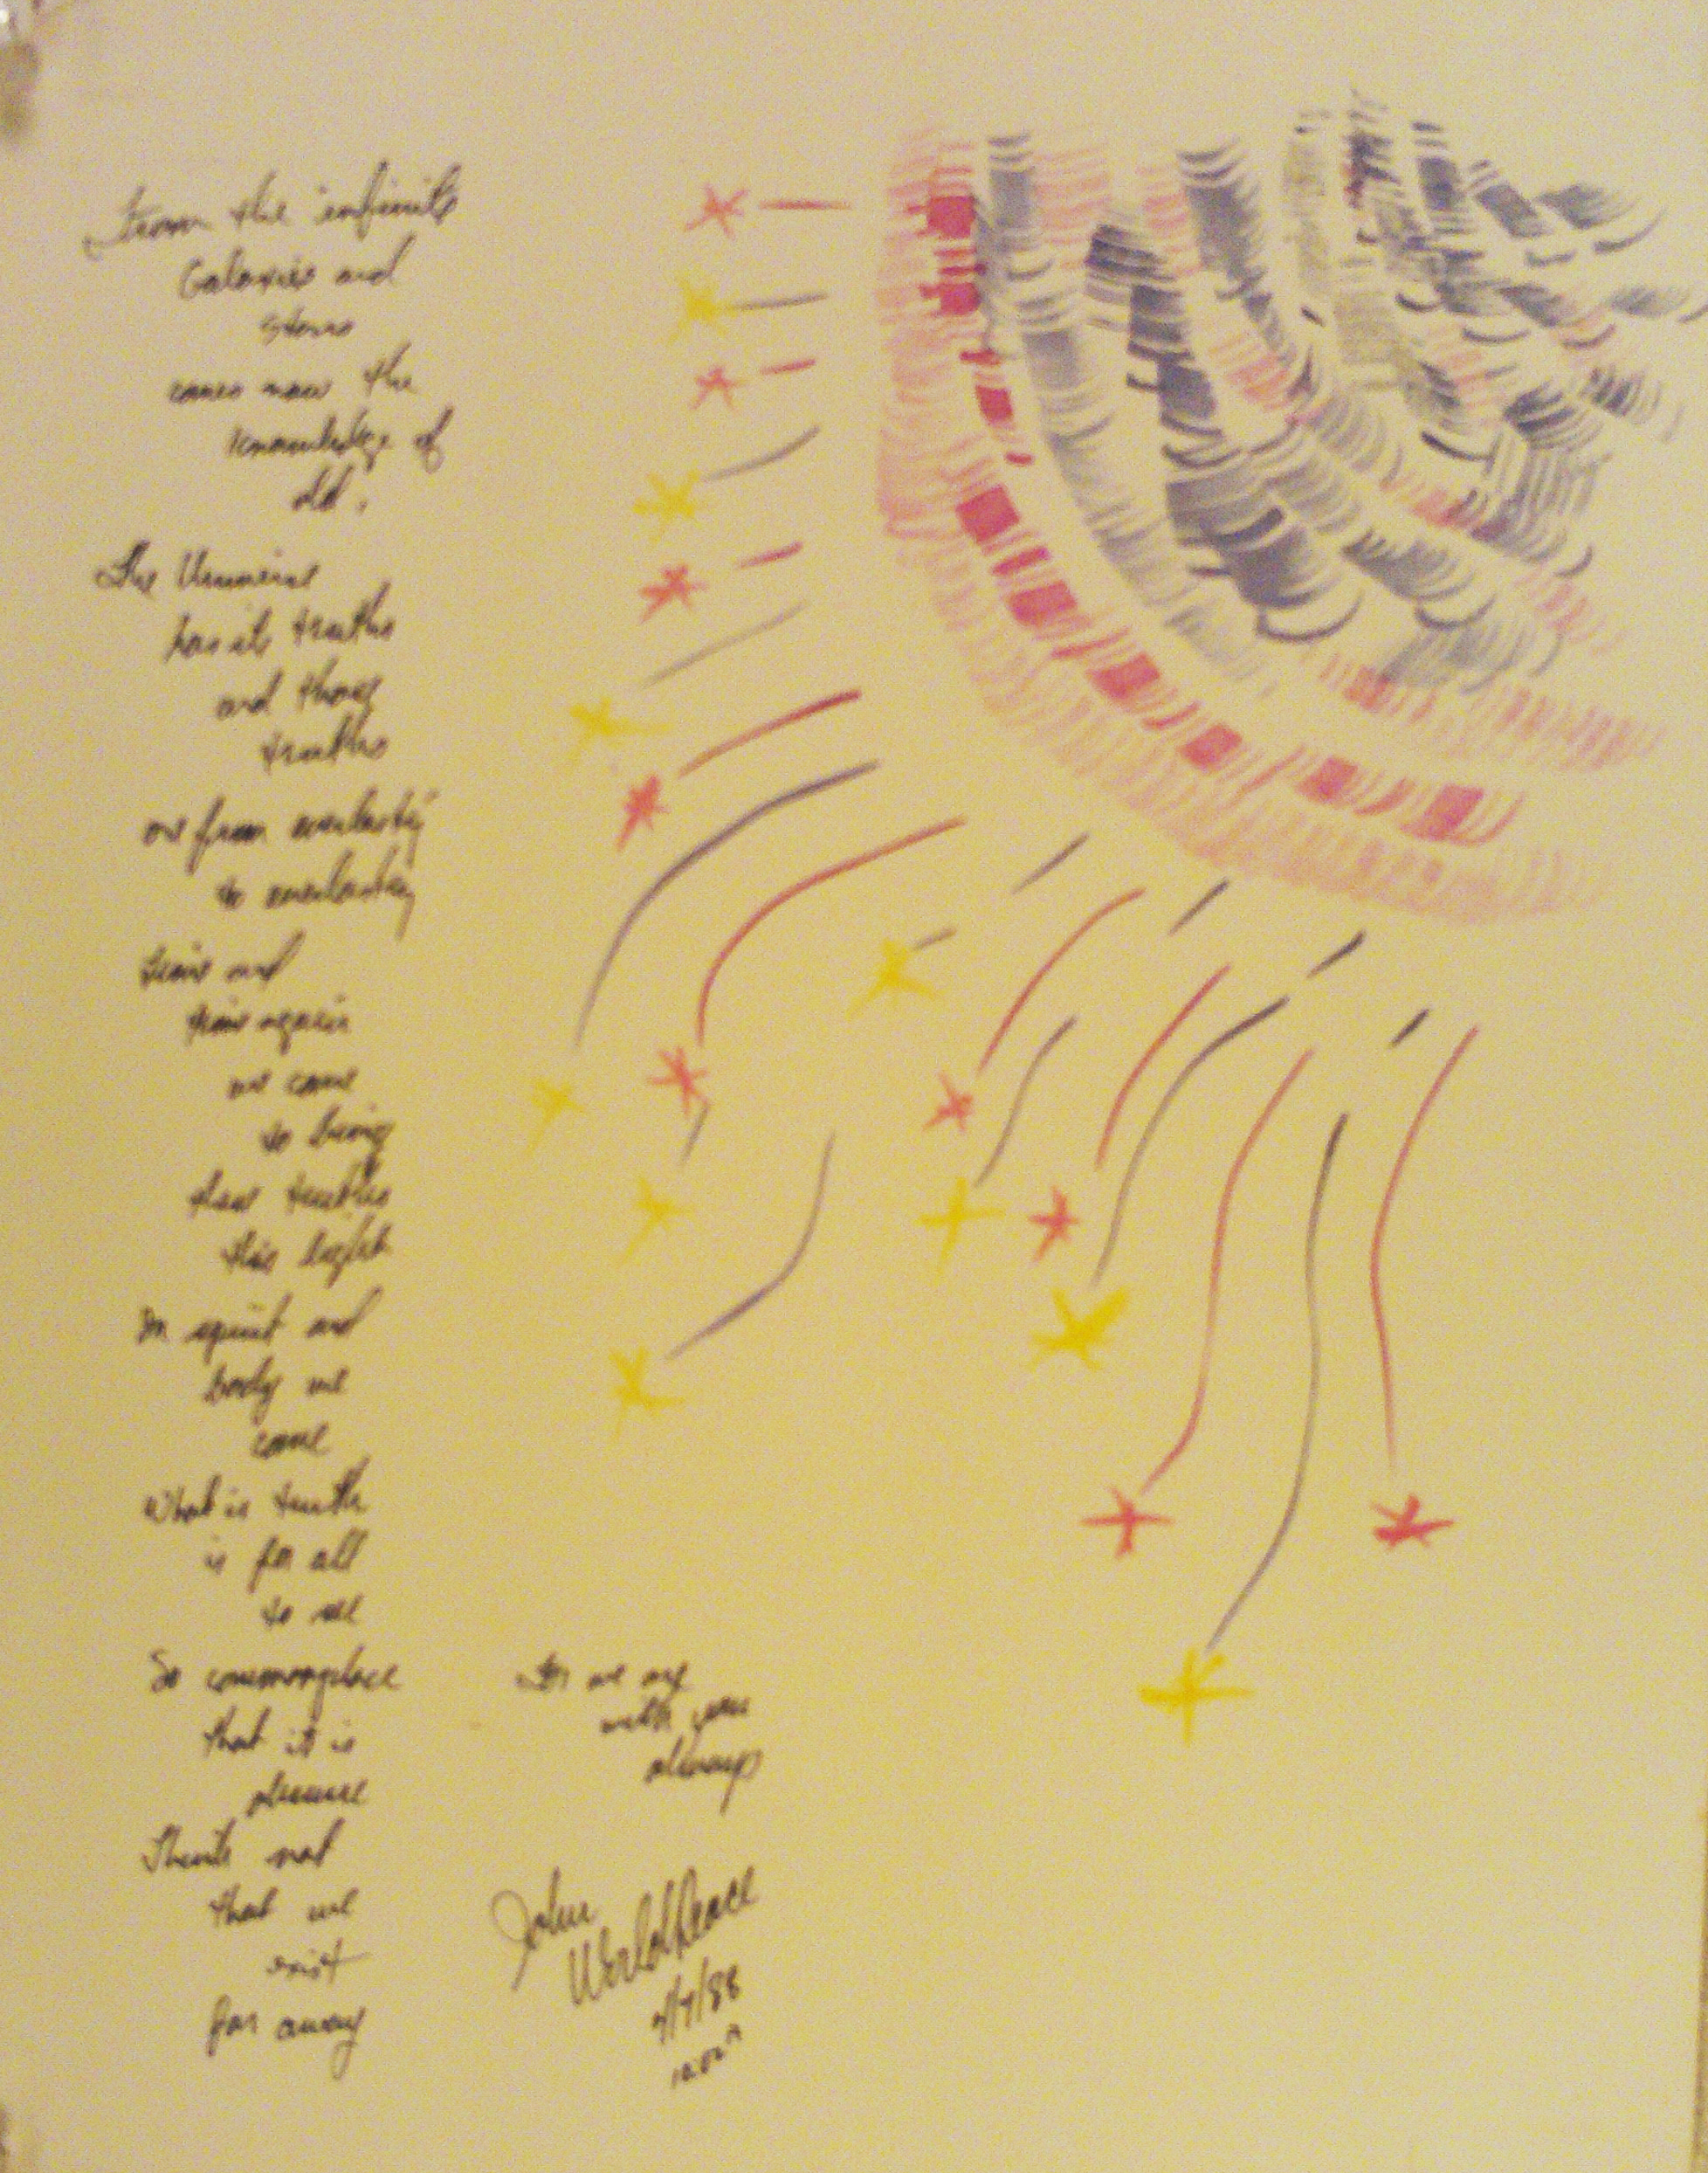 From the infinite
Galaxies and
stars
comes now the
knowledge of
old.
The Universe
has its truths
and those
truths
are from everlasting
to everlasting
time and
time again
we come
to bring
these truths
this light
In spirit and
body we
come
What is truth
is for all
to see
So commonplace
that it is
obscure
Think not
that we
exist
far away
for we are
with you
always
John
WorldPeace
/7/88